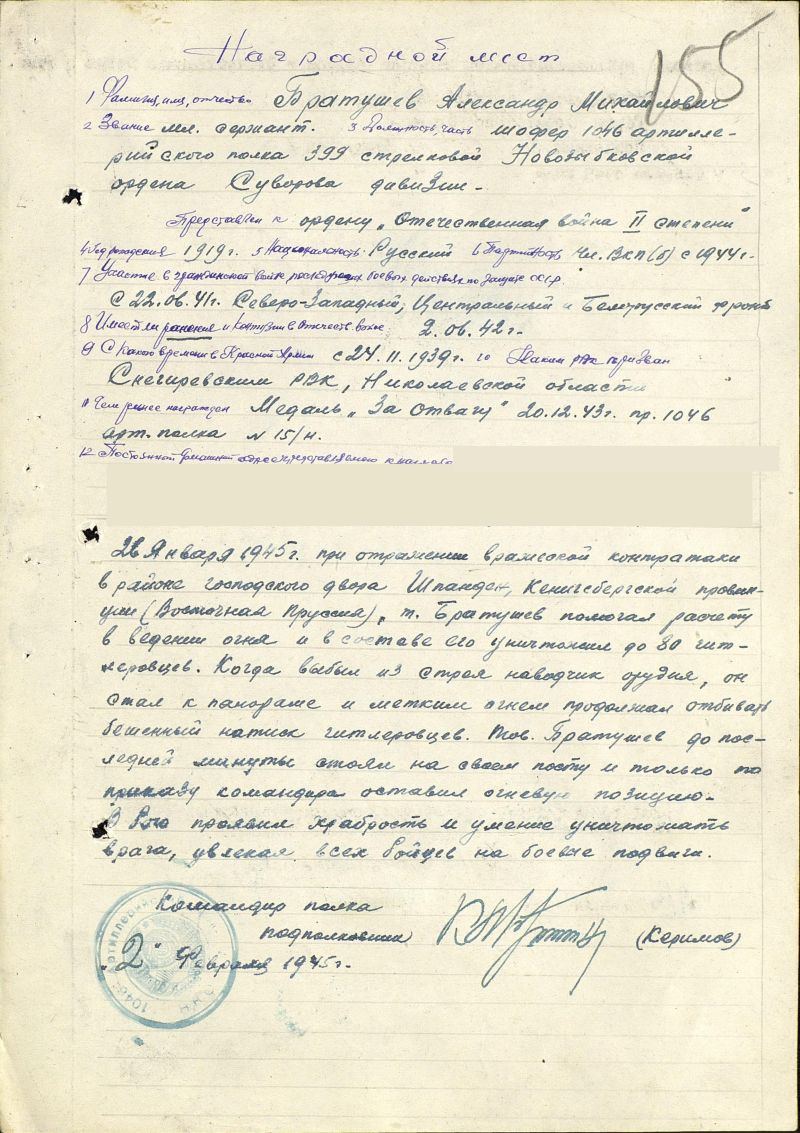 Наградной лист
155
1 Фамилия, имя, отчество Братушев Александр Михайлович
2 Звание мл. сержант. 3 Должность, часть шофер 1046 артилле-
рийского полка 399 стрелковой Новозыбковской
ордена Суворова дивизии-
Представлен к ордену „Отечественная война II степени"
4 Год рождения 1919г. 5 Национальность Русский 6 Партийность Чл. ВКП(б) с 1944г.
7 Участие в гражданской войне, последующих боевых действиях по защите СССР.
С 22.06.41г. Северо-Западный, Центральный и Белорусский фронт
8 Имеет ли ранения и контузии в Отечеств. войне. 2.06.42г.
9 С какого времени в Красной Армии с 24.11.1939г. 10 Каким РВК призван
Снегиревским РВК, Николаевской области
11 Чем ранее награжден Медаль „За отвагу" 20.12.43г. пр. 1046
арт. полка N 15/н.
12 Постоянный домашний адрес представляемого к награде
26 января 1945г. при отражении вражеской контратаки
в районе господского двора Шпанден, Кенигсбергской провин-
ции (Восточная Пруссия), т. Братушев помогал расчету
в ведении огня и в составе его уничтожил до 80 гит-
леровцев. Когда выбыл из строя наводчик орудия, он
стал к панораме и метким огнем продолжал отбивать
бешенный натиск гитлеровцев. Тов. Братушев до пос-
ледней минуты стоял на своем посту и только по
приказу командира оставил огневую позицию-
В бою проявил храбрость и умение уничтожать
врага, увлекая всех бойцев на боевые подвиги.
Командир полка
подполковник (Керимов)
„2" Февраля 1945г.